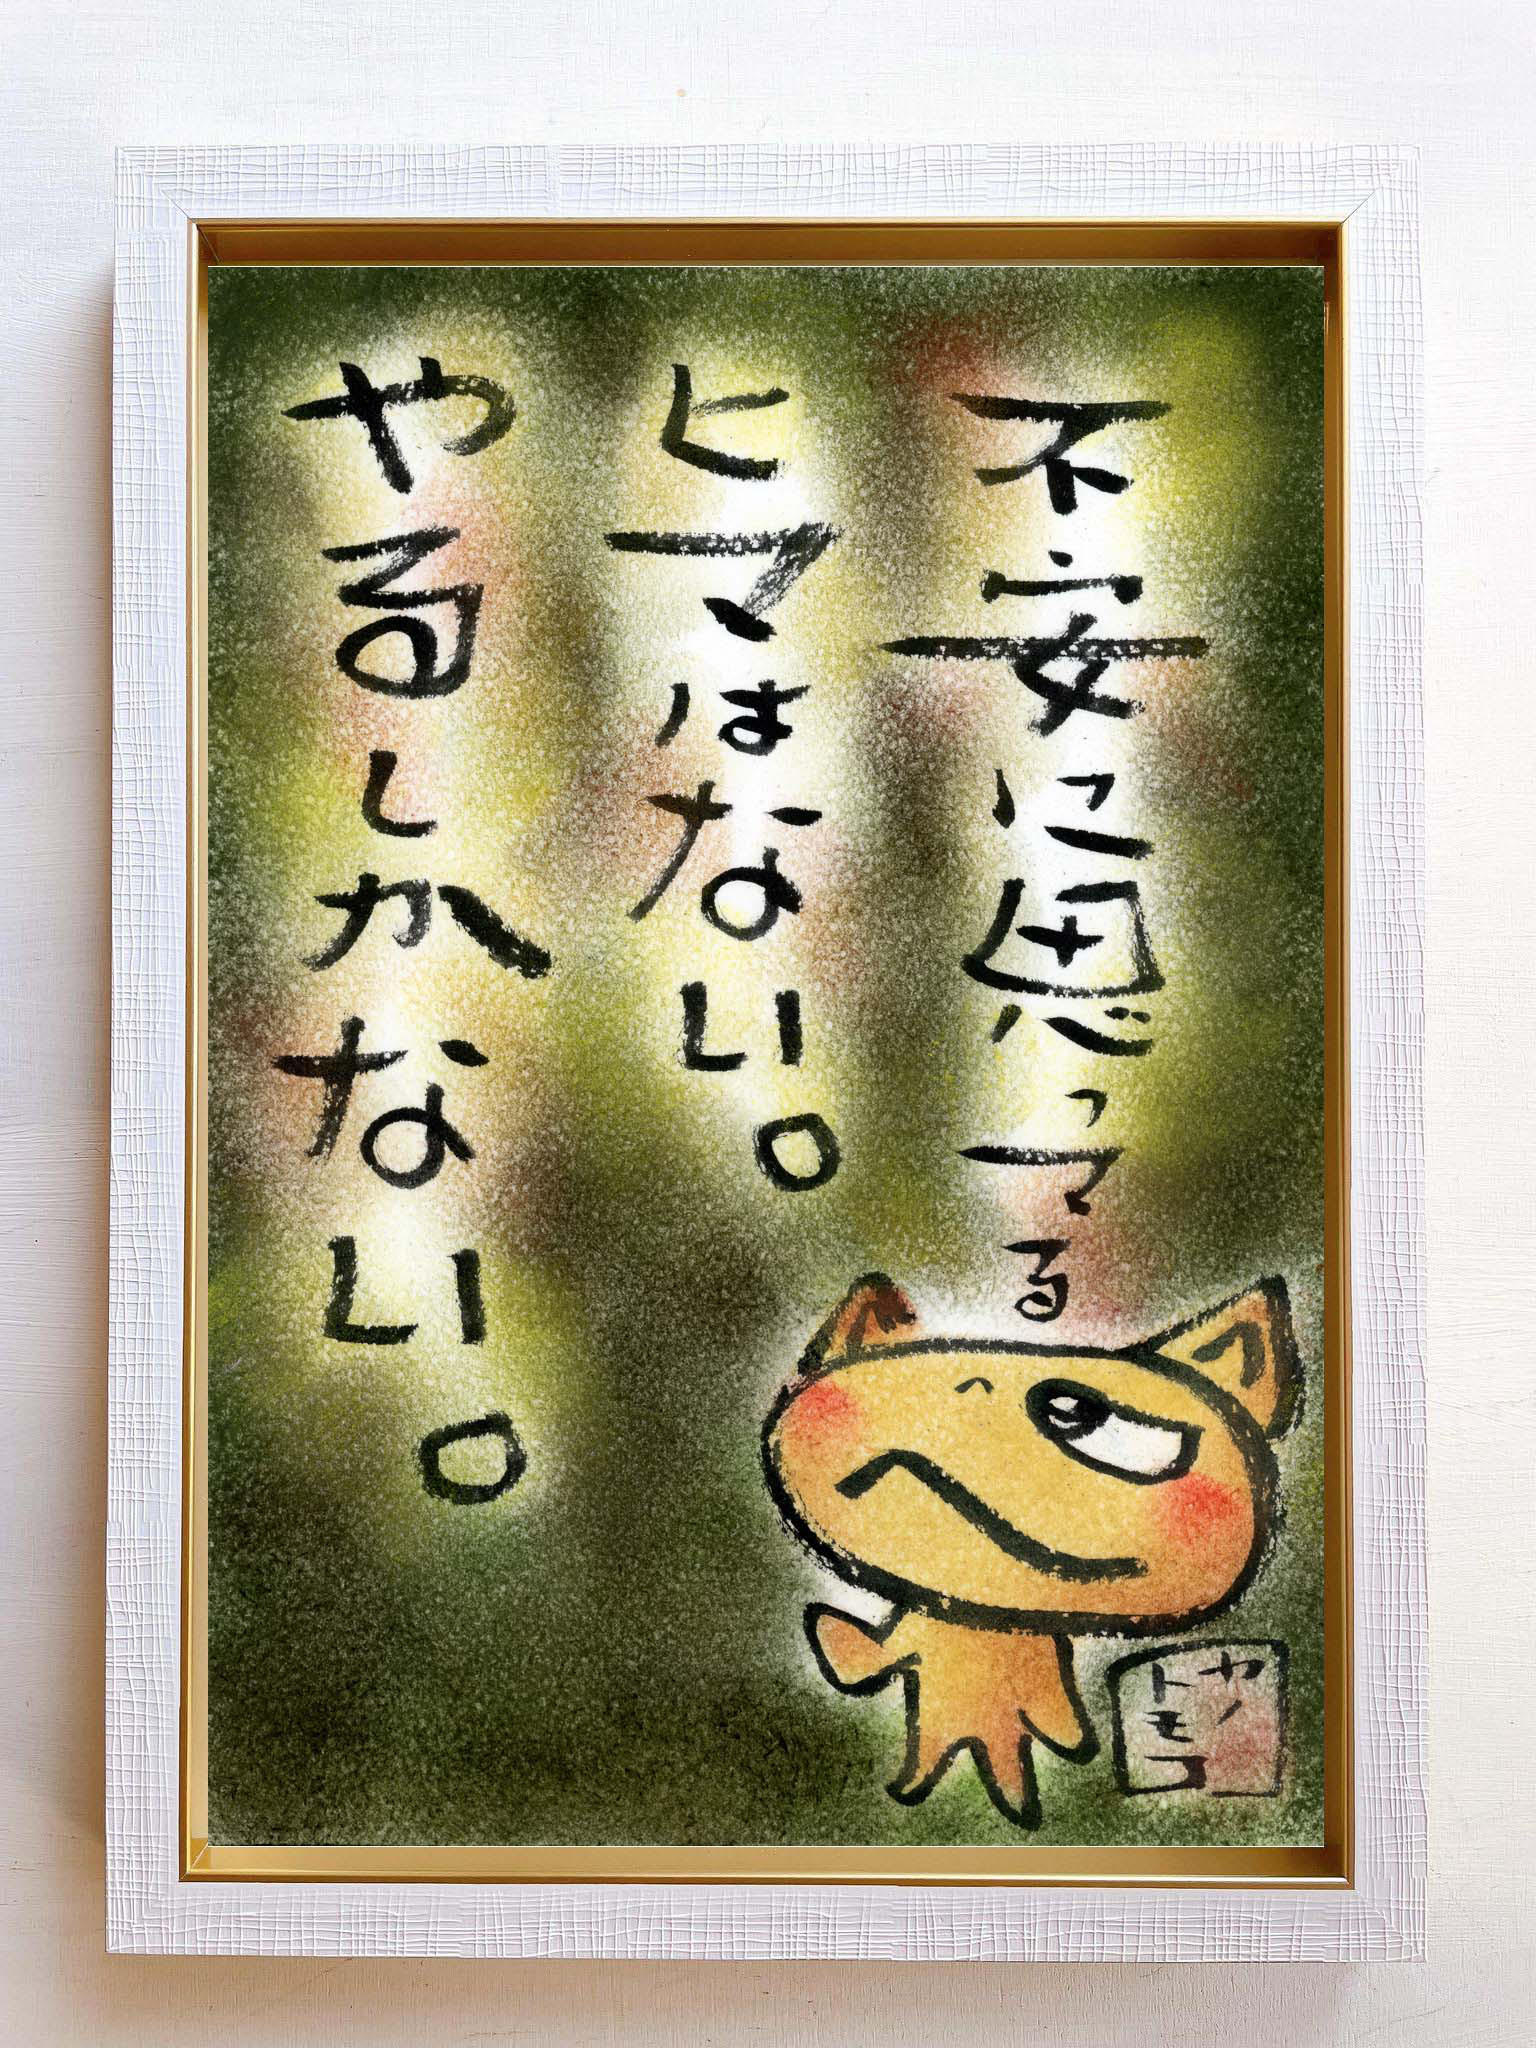 不安に思ってる
ヒマはない。
やるしかない。
ヤノ
トモコ